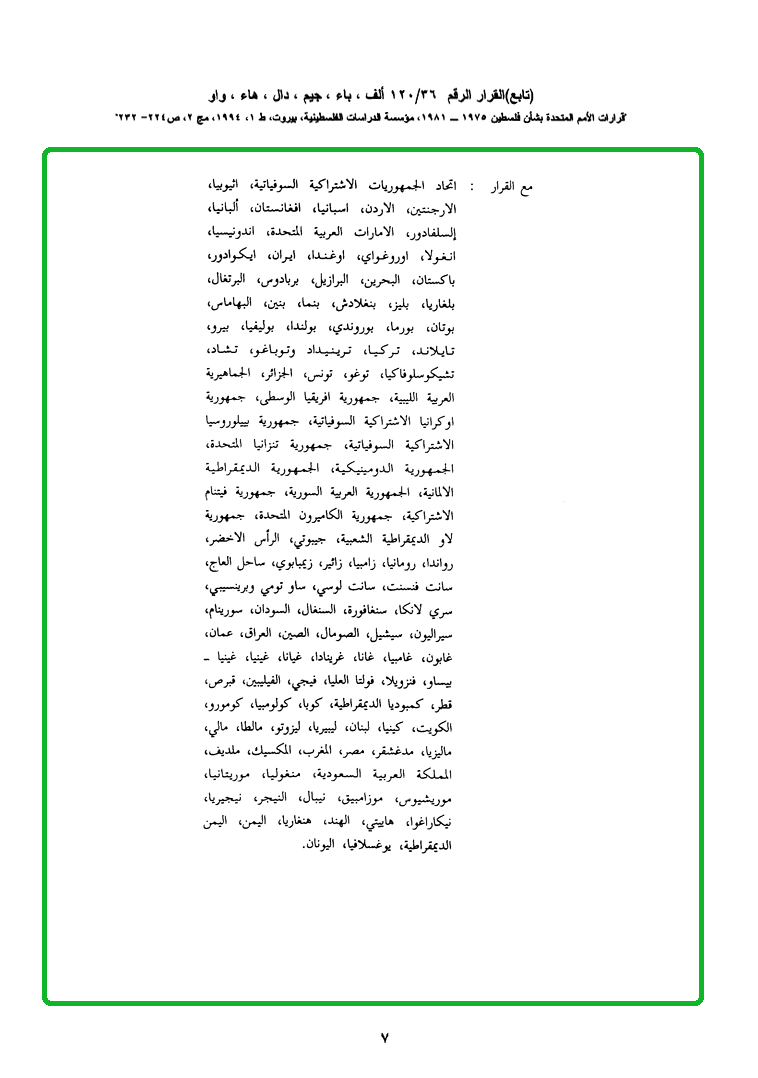 (تابع)القرار الرقم ١٢٠/٣٦ ألف ، باء ، جيم ، دال ، هاء ، واو
"قرارات الأمم المتحدة بشأن فلسطين ١٩٧٥ ــ ١٩٨١، مؤسسة الدراسات الفلسطينية، بيروت، ط ١، ١٩٩٤، مج ٢، ص ٢٢٤- ٢٣٢"
مع القرار : اتحاد الجمهوريات الاشتراكية السوفياتية، اثيوبيا،
الارجنتين، الاردن، اسبانيا، افغانستان، ألبانيا،
إلسلفادور، الامارات العربية المتحدة، اندونيسيا،
انغولا، اوروغواي، اوغندا، ايران، ايكوادور،
باكستان، البحرين، البرازيل، بربادوس، البرتغال،
بلغاريا، بليز، بنغلادش، بنما، بنين، البهاماس،
بوتان، بورما، بوروندي، بولندا، بوليفيا، بيرو،
تايلاند، تركيا، ترينيداد وتوباغو، تشاد،
تشيكوسلوفاكيا، توغو، تونس، الجزائر، الجماهيرية
العربية الليبية، جمهورية افريقيا الوسطى، جمهورية
اوكرانيا الاشتراكية السوفياتية، جمهورية بييلوروسيا
الاشتراكية السوفياتية، جمهورية تنزانيا المتحدة،
الجمهورية الدومينيكية، الجمهورية الديمقراطية
الالمانية، الجمهورية العربية السورية، جمهورية فيتنام
الاشتراكية، جمهورية الكاميرون المتحدة، جمهورية
لاو الديمقراطية الشعبية، جيبوتي، الرأس الاخضر،
رواندا، رومانيا، زامبيا، زائير، زيمبابوي، ساحل العاج،
سانت فنسنت، سانت لوسي، ساو تومي وبرينسيبي،
سري لانكا، سنغافورة، السنغال، السودان، سورينام،
سيراليون، سيشيل، الصومال، الصين، العراق، عمان،
غابون، غامبيا، غانا، غرينادا، غيانا، غينيا، غينيا ــ
بيساو، فنزويلا، فولتا العليا، فيجي، الفيليبين، قبرص،
قطر، كمبوديا الديمقراطية، كوبا، كولومبيا، كومورو،
الكويت، كينيا، لبنان، ليبيريا، ليزوتو، مالطا، مالي،
ماليزيا، مدغشقر، مصر، المغرب، المكسيك، ملديف،
المملكة العربية السعودية، منغوليا، موريتانيا،
موريشيوس، موزامبيق، نيبال، النيجر، نيجيريا،
نيكاراغوا، هاييتي، الهند، هنغاريا، اليمن، اليمن
الديمقراطية، يوغسلافيا، اليونان.
٧